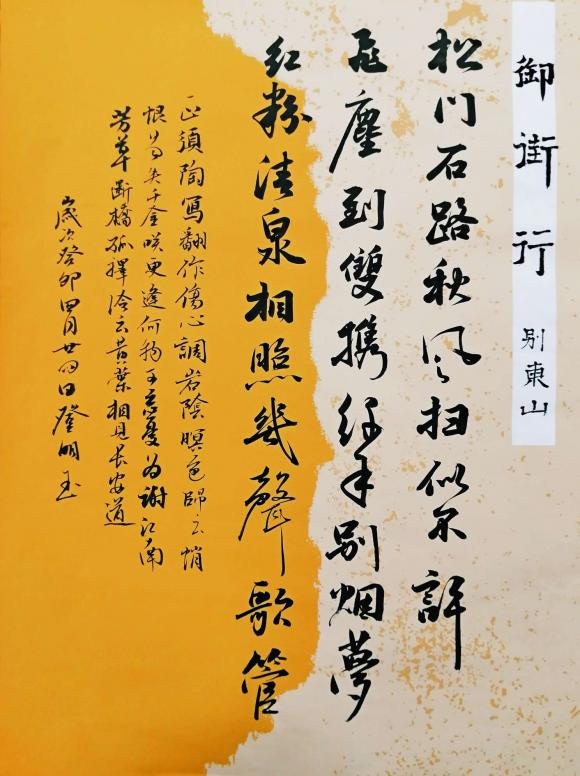 御街行 别東山
松门石路秋风扫似不許
飛塵到雙攜纤手别烟夢
红粉清泉相照幾聲歌管
正須陶写翻作傷心調岩陰暝色歸云悄
恨易失千金咲更逢何物可忘憂为谢江南
芳草断橋孤擇冷云黄葉相見长安道
歲次癸卯四月廿四日登明玉